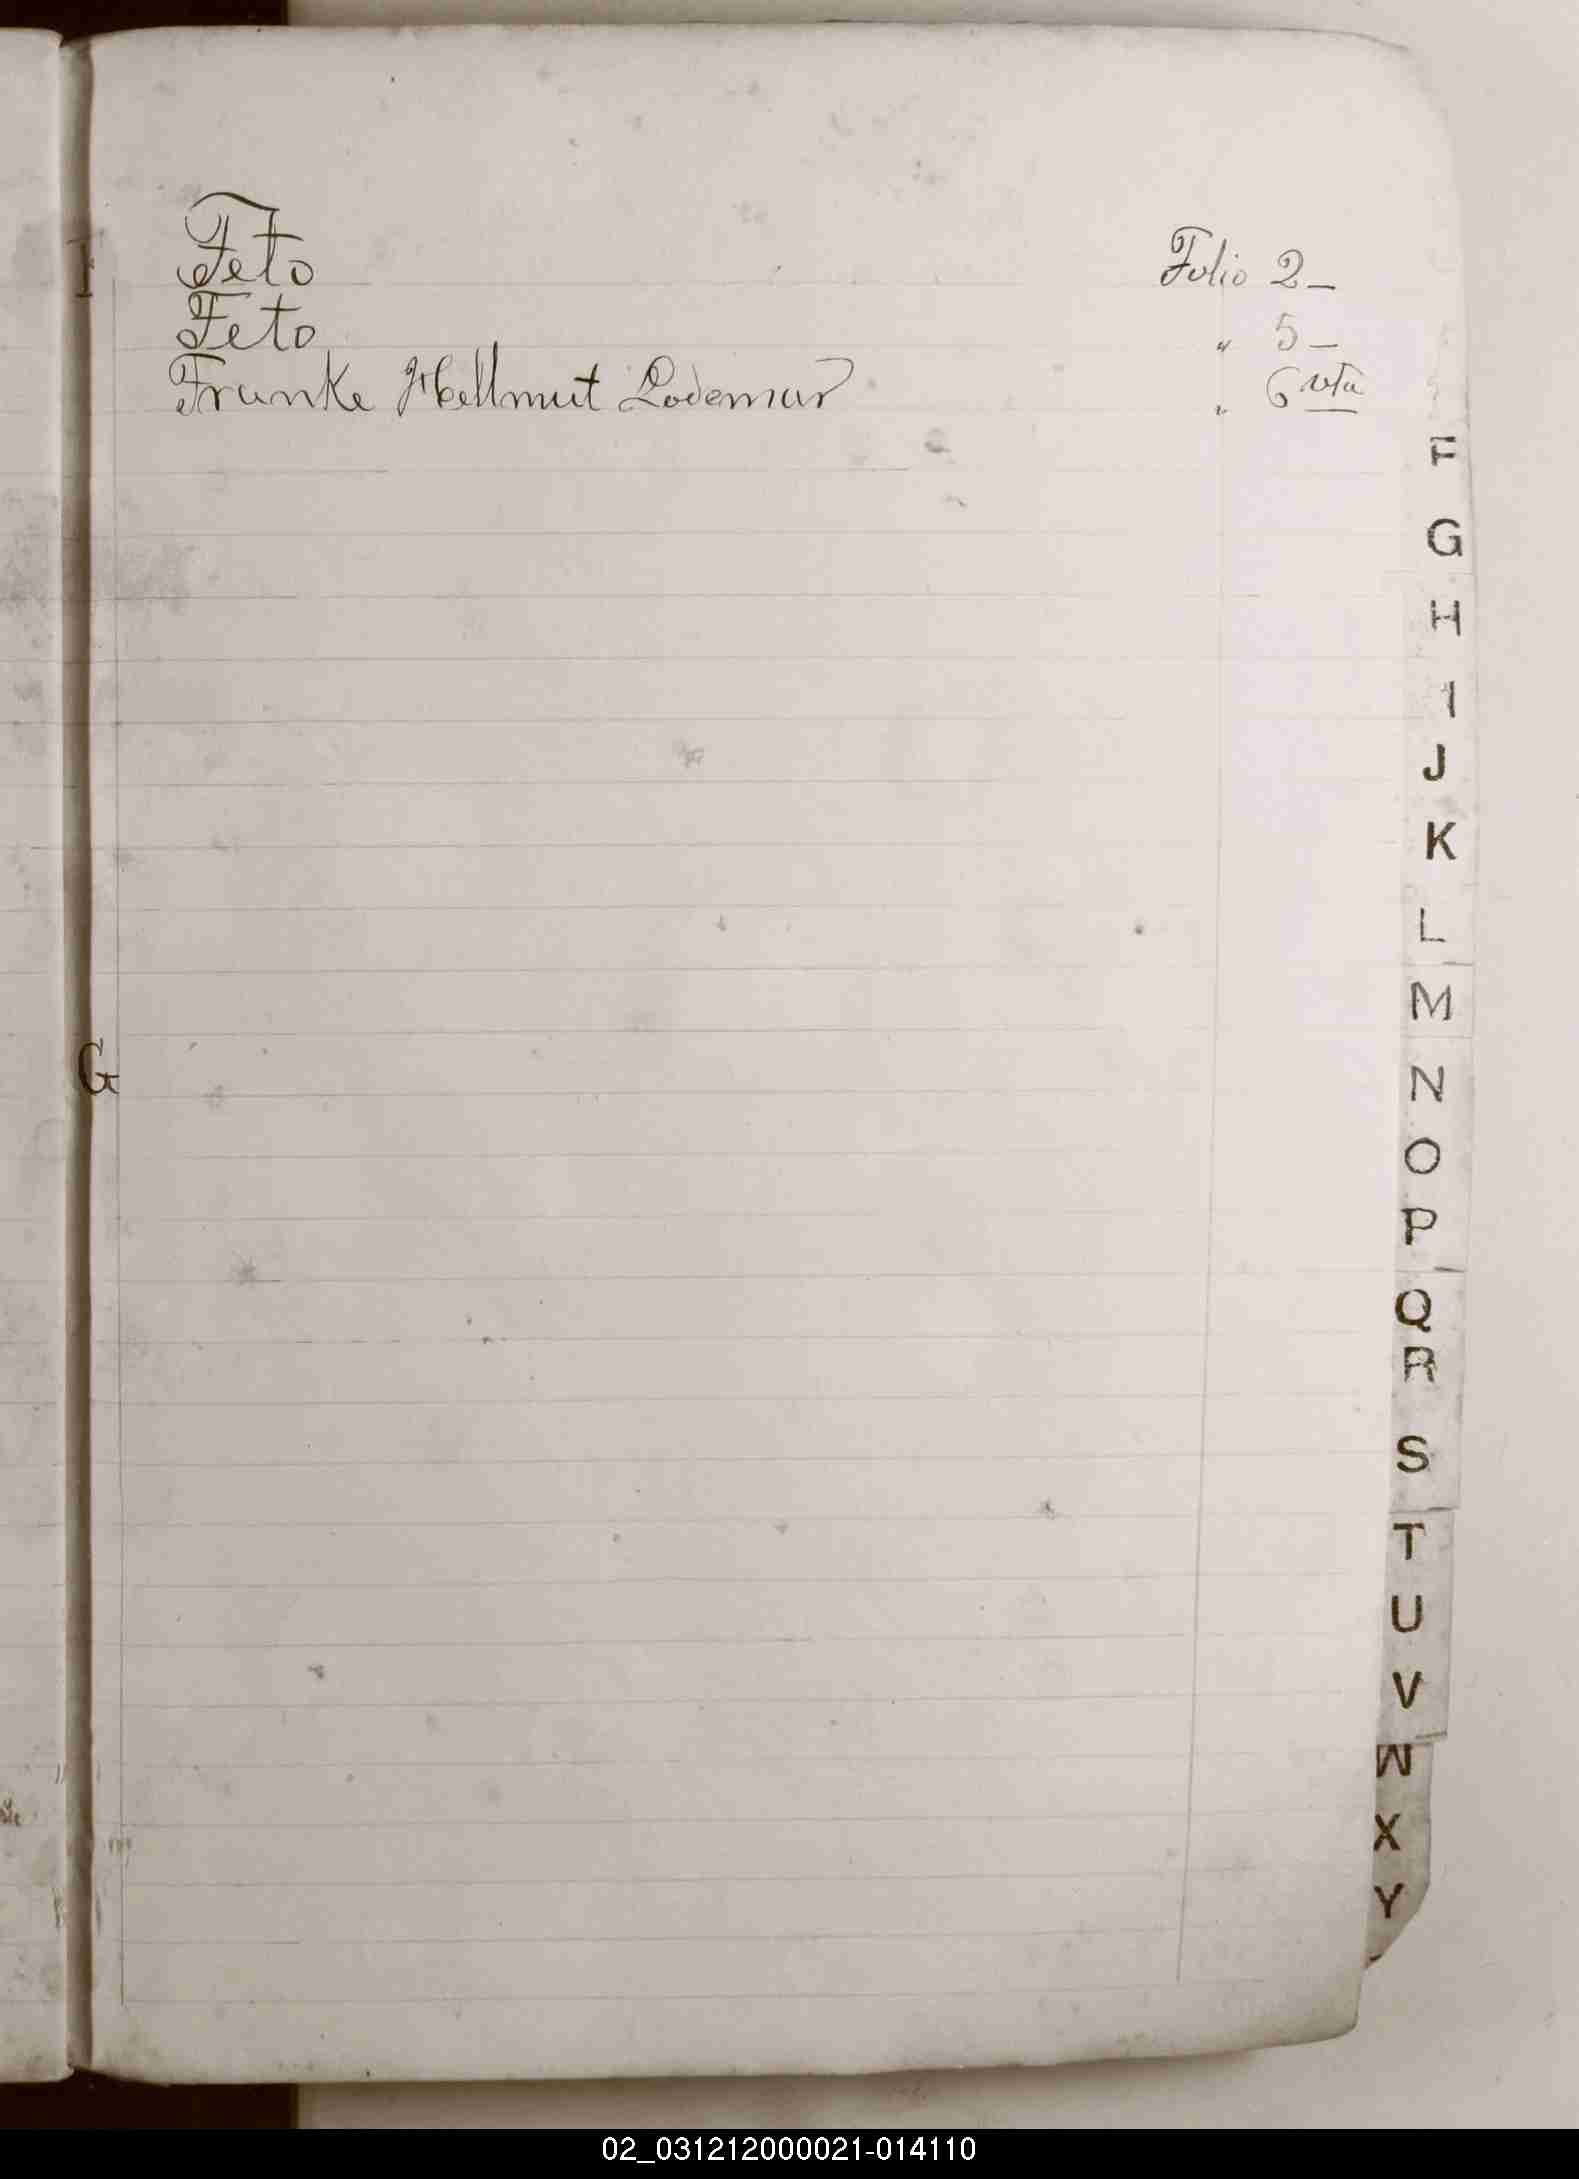 F
Feto Folio 2_
Feto " 5_
Franke Hellmut Lodemar " 6 vta
G
F
G
H
I
J
K
L
M
N
O
P
Q
R
S
T
U
V
W
X
Y
02_031212000021-014110